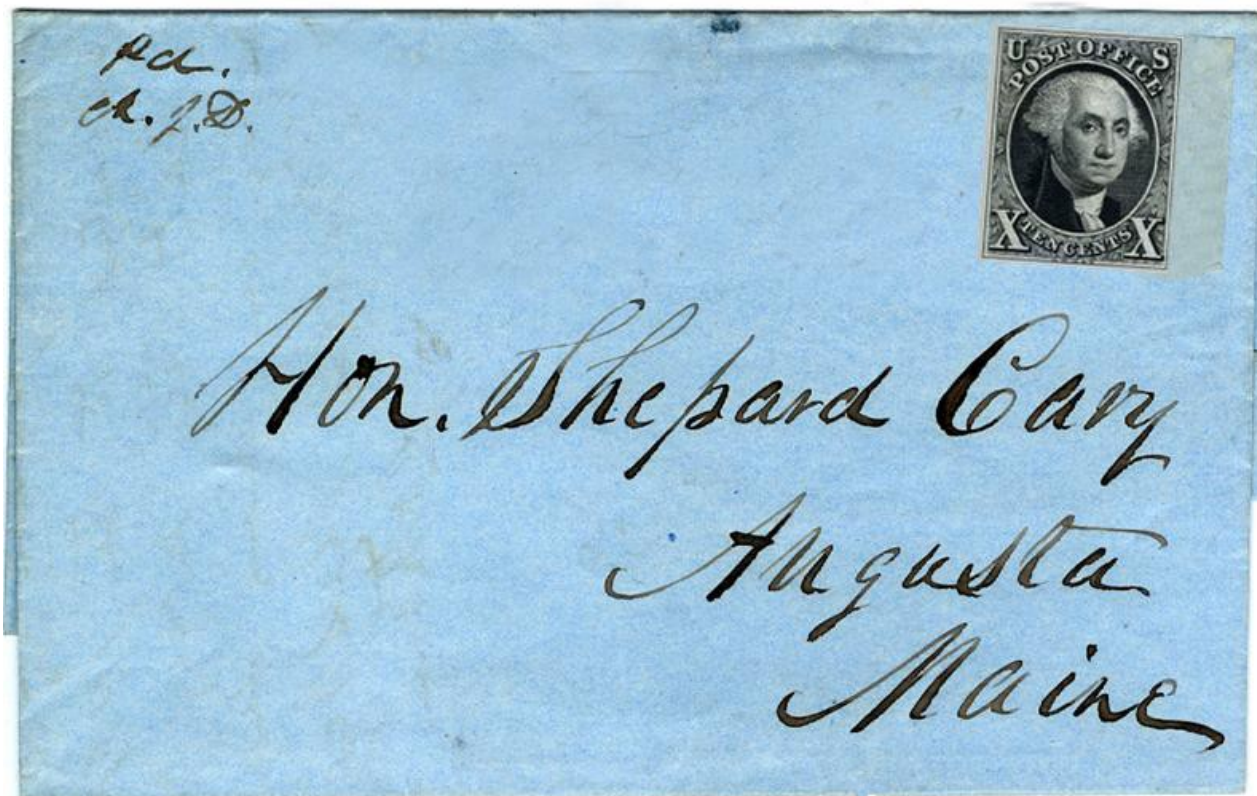 Pd.
U S
POST OFFICE
X TEN CENTS X
Hon. Shepard Cary
Augusta
Maine